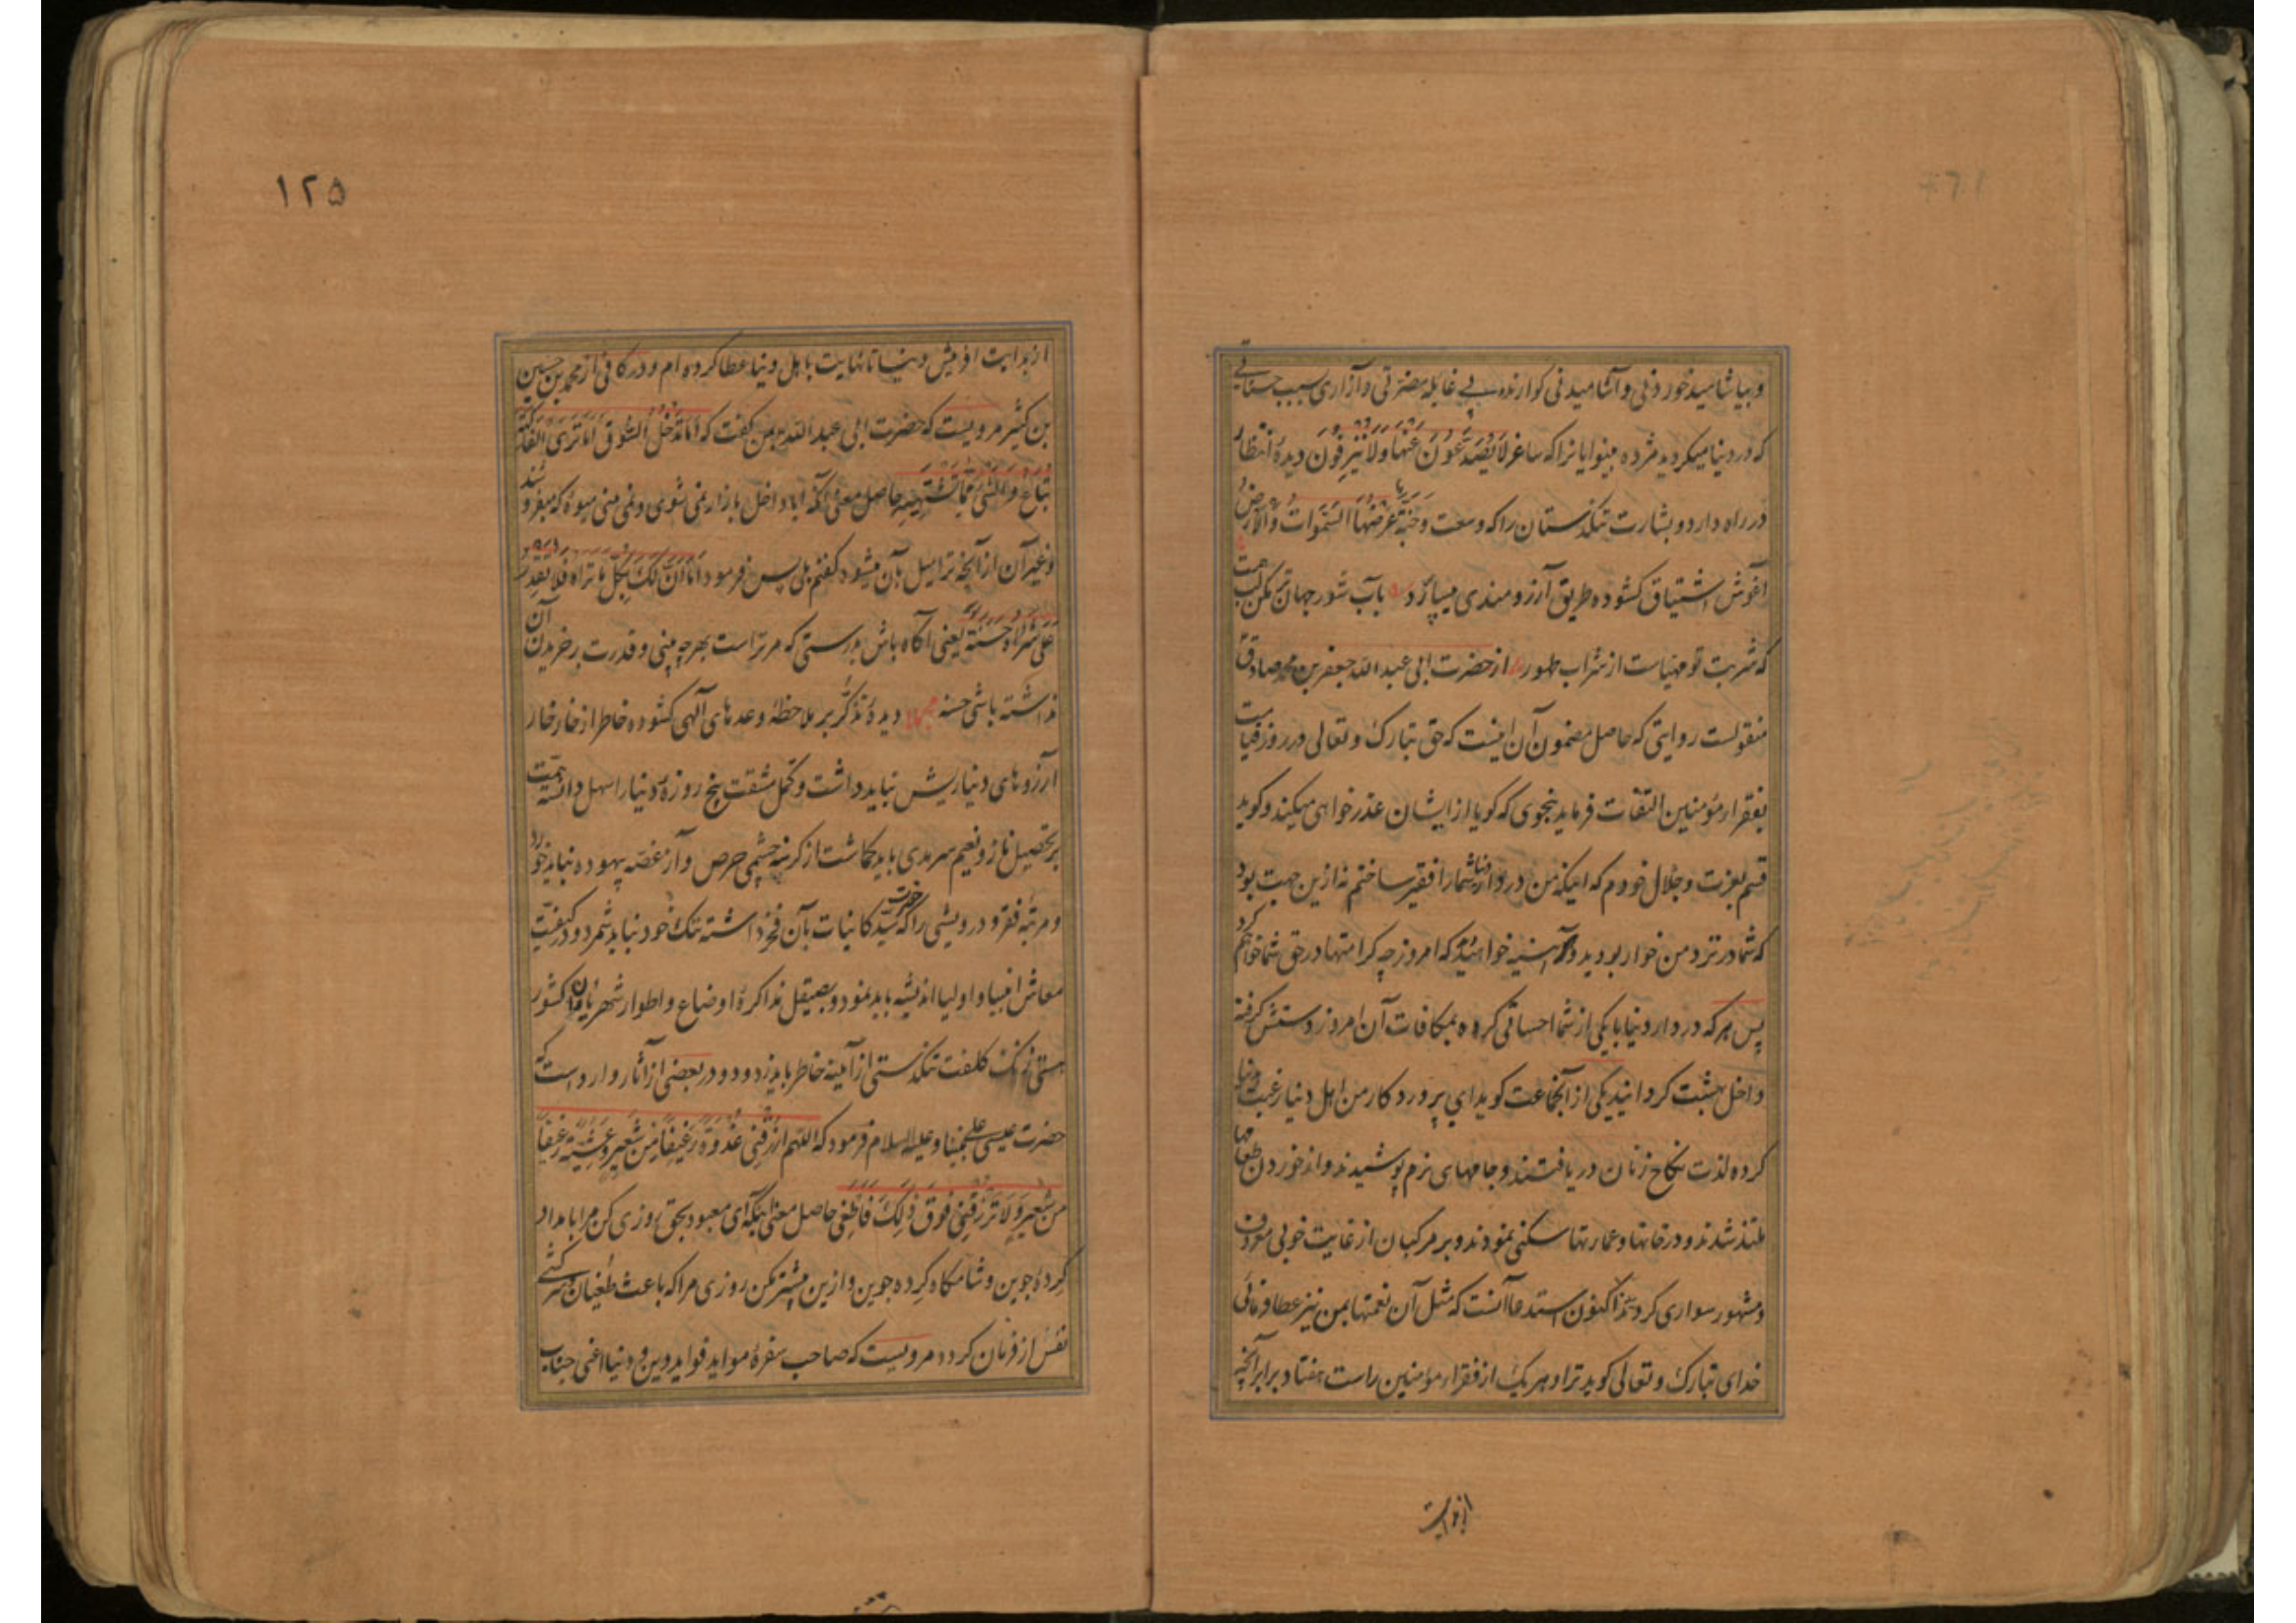 و بیاشامید خوردنی و آشامیدنی کوارنده بی غایله مضرتی و آزاری بسبب حسناتی
که در دنیا میکردید مژده بینوایانرا که ساغر لَا یُصَدَّعُونَ عَنْهَا وَلَا یُنْزِفُونَ دیدهٔ انتظار
در راه دارد و بشارت تنکدستان را که وسعت وَجَنَّةٍ عَرْضُهَا السَّمَوَاتُ وَالْأَرْضُ
آغوش اشتیاق کشوده طریق آرزومندی میسپارد بآب شور جهان تر مکن لب همت
که شربت تو مهیاست از شراب طهور از حضرت ابی عبد الله جعفر بن محمد صادق
منقولست روایتی که حاصل مضمون آن اینست که حق تبارک و تعالی در روز قیامت
بفقراء مؤمنین التفات فرماید بنحوی که کویا از ایشان عذرخواهی میکند و کوید
قسم بعزت و جلال خودم که اینکه من در دار دنیا شما را فقیر ساختم نه ازین جهت بود
که شما در نزد من خوار بودید و هر آینه خواهید که امروز چه کرامتها در حق شما خواهم کرد
پس هر که در دار دنیا با یکی از شما احسانی کرده بمکافات آن امروز دستش کرفته
داخل بهشت کردانید یکی از آنجماعت کوید ای پروردکار من اهل دنیا رغبت بدنیا
کرده لذت نکاح زنان دریافتند و جامهای نرم پوشیدند و از خوردن طعامها
ملتذ شدند و در خانها و عمارتها سکنی نمودند و بر مرکبان از غایت خوبی معروف
و مشهور سواری کردند اکنون استدعا آنست که مثل آن نعمتها بمن نیز عطا فرمائی
خدای تبارک و تعالی کوید ترا و هر یک از فقراء مؤمنین راست هفتاد برابر آنچه
از بدایت
١٢٥
از بدایت آفرینش دنیا تا نهایت باهل دنیا عطا کرده ام و در کافی از محمد بن حسین
بن کثیر مرویست که حضرت ابی عبد الله بمن کفت که اَمَا تَدْخُلُ السُّوقَ اَمَا تَرَی الْفَاکِهَةَ
تُبَاعُ وَالشَّیْءَ مِمَّا تَشْتَهِیهِ حاصل معنی آنکه آیا داخل بازار نمی شوی و نمی بینی میوهٔ که میفروشند
و غیر آن از آنچه ترا میل بآن میشود کفتم بلی پس فرمود اَمَا اِنَّ لَکَ بِکُلِّ مَا تَرَاهُ فَلَا تَقْدِرُ
عَلَی شِرَاهُ حَسَنَةً یعنی آکاه باش بدرستی که مر تراست بهر چه بینی و قدرت بر خریدن آن
نداشته باشی حسنه مجملا دیدهٔ تذکّر بر ملاحظهٔ وعدهای الهی کشوده خاطر از خار خار
آرزوهای دنیا ریش نباید داشت و تحمل مشقت پنج روزهٔ دنیا را سهل دانسته همّت
بر تحصیل ناز و نعیم سرمدی باید کماشت از کرسنه چشمی حرص و آز غصّه بیهوده نباید خورد
و مرتبهٔ فقر و درویشی را که سیّد کاینات بآن فخر داشته ننک خود نباید شمرد و در کیفیّت
معاش انبیا و اولیا اندیشه باید نمود و بصیقل مذاکرهٔ اوضاع و اطوار شهریاران کشور
هستی زنک کلفت تنکدستی از آینهٔ خاطر باید زدود و در بعضی از آثار وارد است که
حضرت عیسی علی نبینا و علیه السلام فرمود که اللهم ارْزُقْنِی غُدْوَةً رَغِیفًا مِنْ شَعِیرٍ وَعَشِیَّةً رَغِیفًا
مِنْ شَعِیرٍ وَلَا تَرْزُقْنِی فَوْقَ ذَلِکَ فَاَطْغَی حاصل معنی اینکه ای معبود بحق روزی کن مرا بامداد
کردهٔ جوین و شامکاه کرده جوین و ازین بیشتر مکن روزی مرا که باعث طغیان و سرکشی
نفس از فرمان کردد مرویست که صاحب سفرهٔ مواید فواید دین و دنیا اعنی جناب